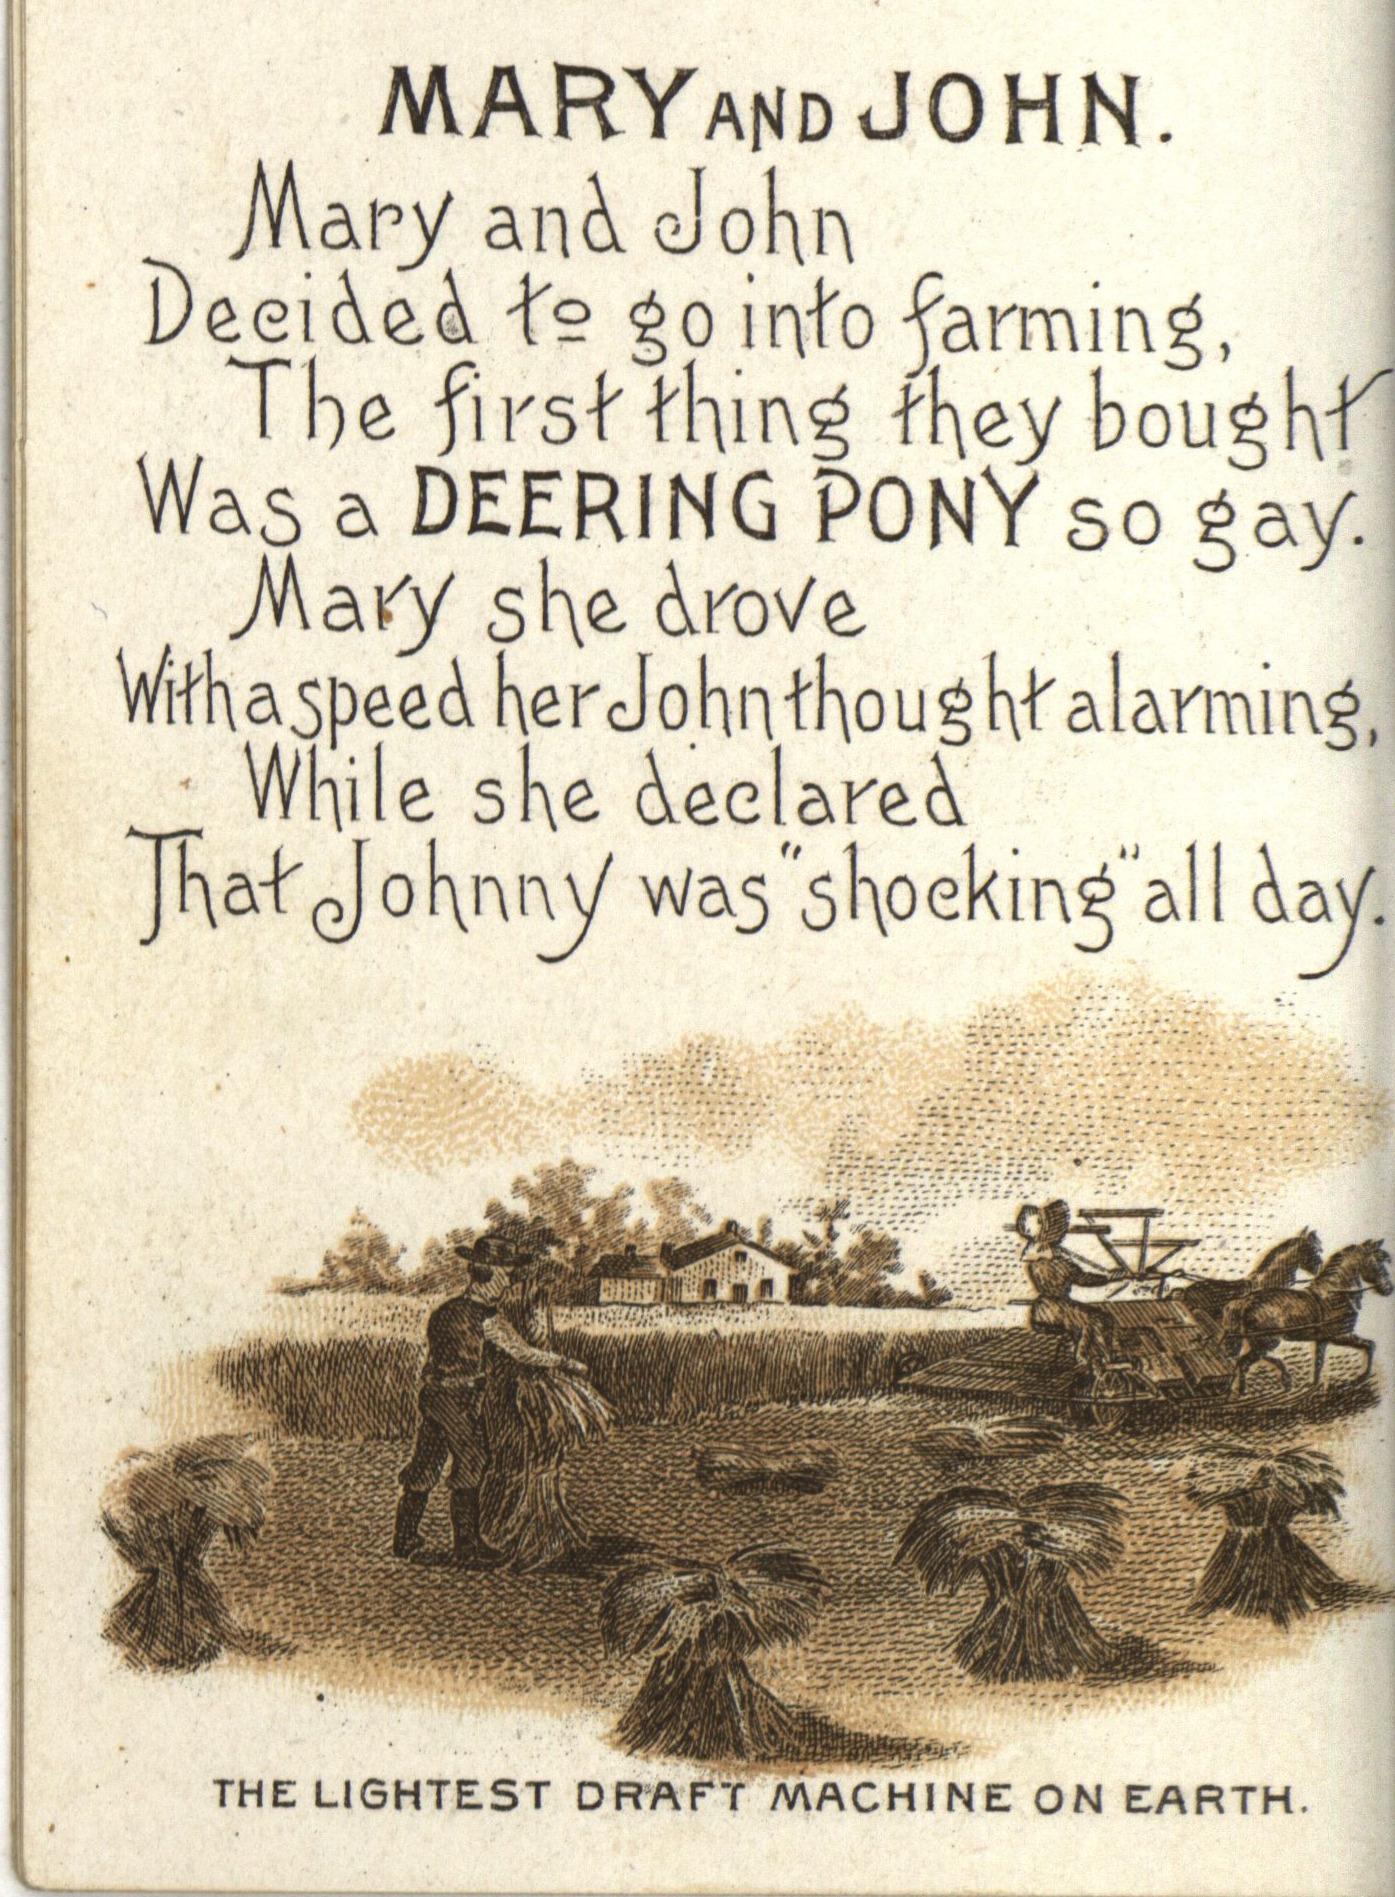 MARY AND JOHN.
Mary and John
Decided to go into farming,
The first thing they bought
Was a DEERING PONY so gay.
Mary she drove
With a speed her John thought alarming,
While she declared
That Johnny was "shocking" all day.
THE LIGHTEST DRAFT MACHINE ON EARTH.